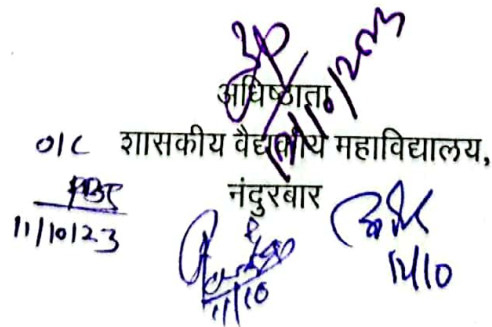 अधिष्ठाता
O/C शासकीय वैद्यकीय महाविद्यालय,
नंदुरबार
11/10/23
11/10
12/10